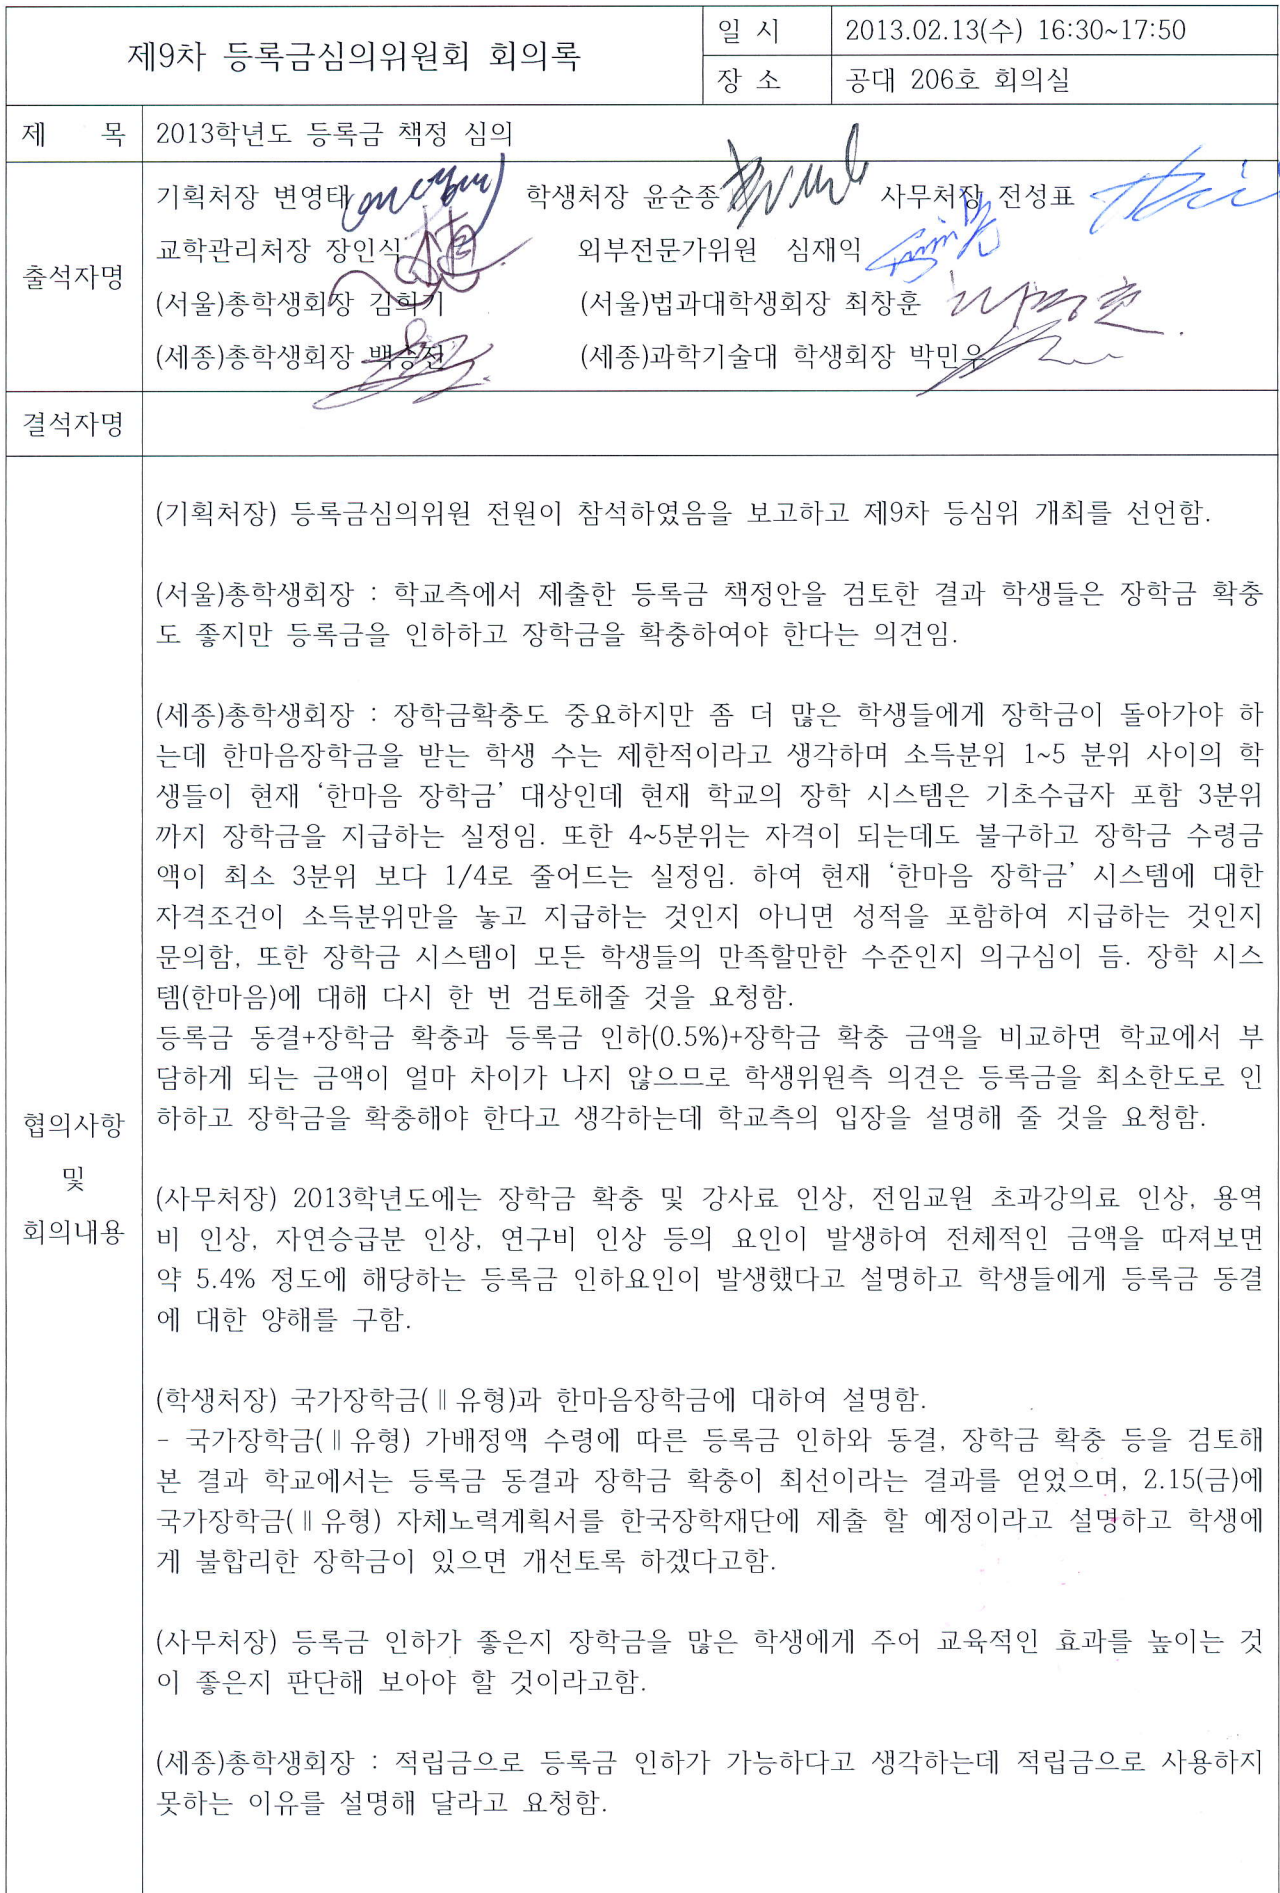 제9차 등록금심의위원회 회의록
일 시
2013.02.13(수) 16:30~17:50
장 소
공대 206호 회의실
제 목
2013학년도 등록금 책정 심의
출석자명
기획처장 변영태 학생처장 윤순종 사무처장 전성표
교학관리처장 장인식 외부전문가위원 심재익
(서울)총학생회장 김희기 (서울)법과대학생회장 최창훈
(세종)총학생회장 (세종)과학기술대 학생회장 박민우
결석자명
협의사항
및
회의내용
(기획처장) 등록금심의위원 전원이 참석하였음을 보고하고 제9차 등심위 개최를 선언함.
(서울)총학생회장 : 학교측에서 제출한 등록금 책정안을 검토한 결과 학생들은 장학금 확충
도 좋지만 등록금을 인하하고 장학금을 확충하여야 한다는 의견임.
(세종)총학생회장 : 장학금확충도 중요하지만 좀 더 많은 학생들에게 장학금이 돌아가야 하
는데 한마음장학금을 받는 학생 수는 제한적이라고 생각하며 소득분위 1~5 분위 사이의 학
생들이 현재 ‘한마음 장학금’ 대상인데 현재 학교의 장학 시스템은 기초수급자 포함 3분위
까지 장학금을 지급하는 실정임. 또한 4~5분위는 자격이 되는데도 불구하고 장학금 수령금
액이 최소 3분위 보다 1/4로 줄어드는 실정임. 하여 현재 ‘한마음 장학금’ 시스템에 대한
자격조건이 소득분위만을 놓고 지급하는 것인지 아니면 성적을 포함하여 지급하는 것인지
문의함, 또한 장학금 시스템이 모든 학생들의 만족할만한 수준인지 의구심이 듬. 장학 시스
템(한마음)에 대해 다시 한 번 검토해줄 것을 요청함.
등록금 동결+장학금 확충과 등록금 인하(0.5%)+장학금 확충 금액을 비교하면 학교에서 부
담하게 되는 금액이 얼마 차이가 나지 않으므로 학생위원측 의견은 등록금을 최소한도로 인
하하고 장학금을 확충해야 한다고 생각하는데 학교측의 입장을 설명해 줄 것을 요청함.
(사무처장) 2013학년도에는 장학금 확충 및 강사료 인상, 전임교원 초과강의료 인상, 용역
비 인상, 자연승급분 인상, 연구비 인상 등의 요인이 발생하여 전체적인 금액을 따져보면
약 5.4% 정도에 해당하는 등록금 인하요인이 발생했다고 설명하고 학생들에게 등록금 동결
에 대한 양해를 구함.
(학생처장) 국가장학금(Ⅱ유형)과 한마음장학금에 대하여 설명함.
- 국가장학금(Ⅱ유형) 가배정액 수령에 따른 등록금 인하와 동결, 장학금 확충 등을 검토해
본 결과 학교에서는 등록금 동결과 장학금 확충이 최선이라는 결과를 얻었으며, 2.15(금)에
국가장학금(Ⅱ유형) 자체노력계획서를 한국장학재단에 제출 할 예정이라고 설명하고 학생에
게 불합리한 장학금이 있으면 개선토록 하겠다고함.
(사무처장) 등록금 인하가 좋은지 장학금을 많은 학생에게 주어 교육적인 효과를 높이는 것
이 좋은지 판단해 보아야 할 것이라고함.
(세종)총학생회장 : 적립금으로 등록금 인하가 가능하다고 생각하는데 적립금으로 사용하지
못하는 이유를 설명해 달라고 요청함.